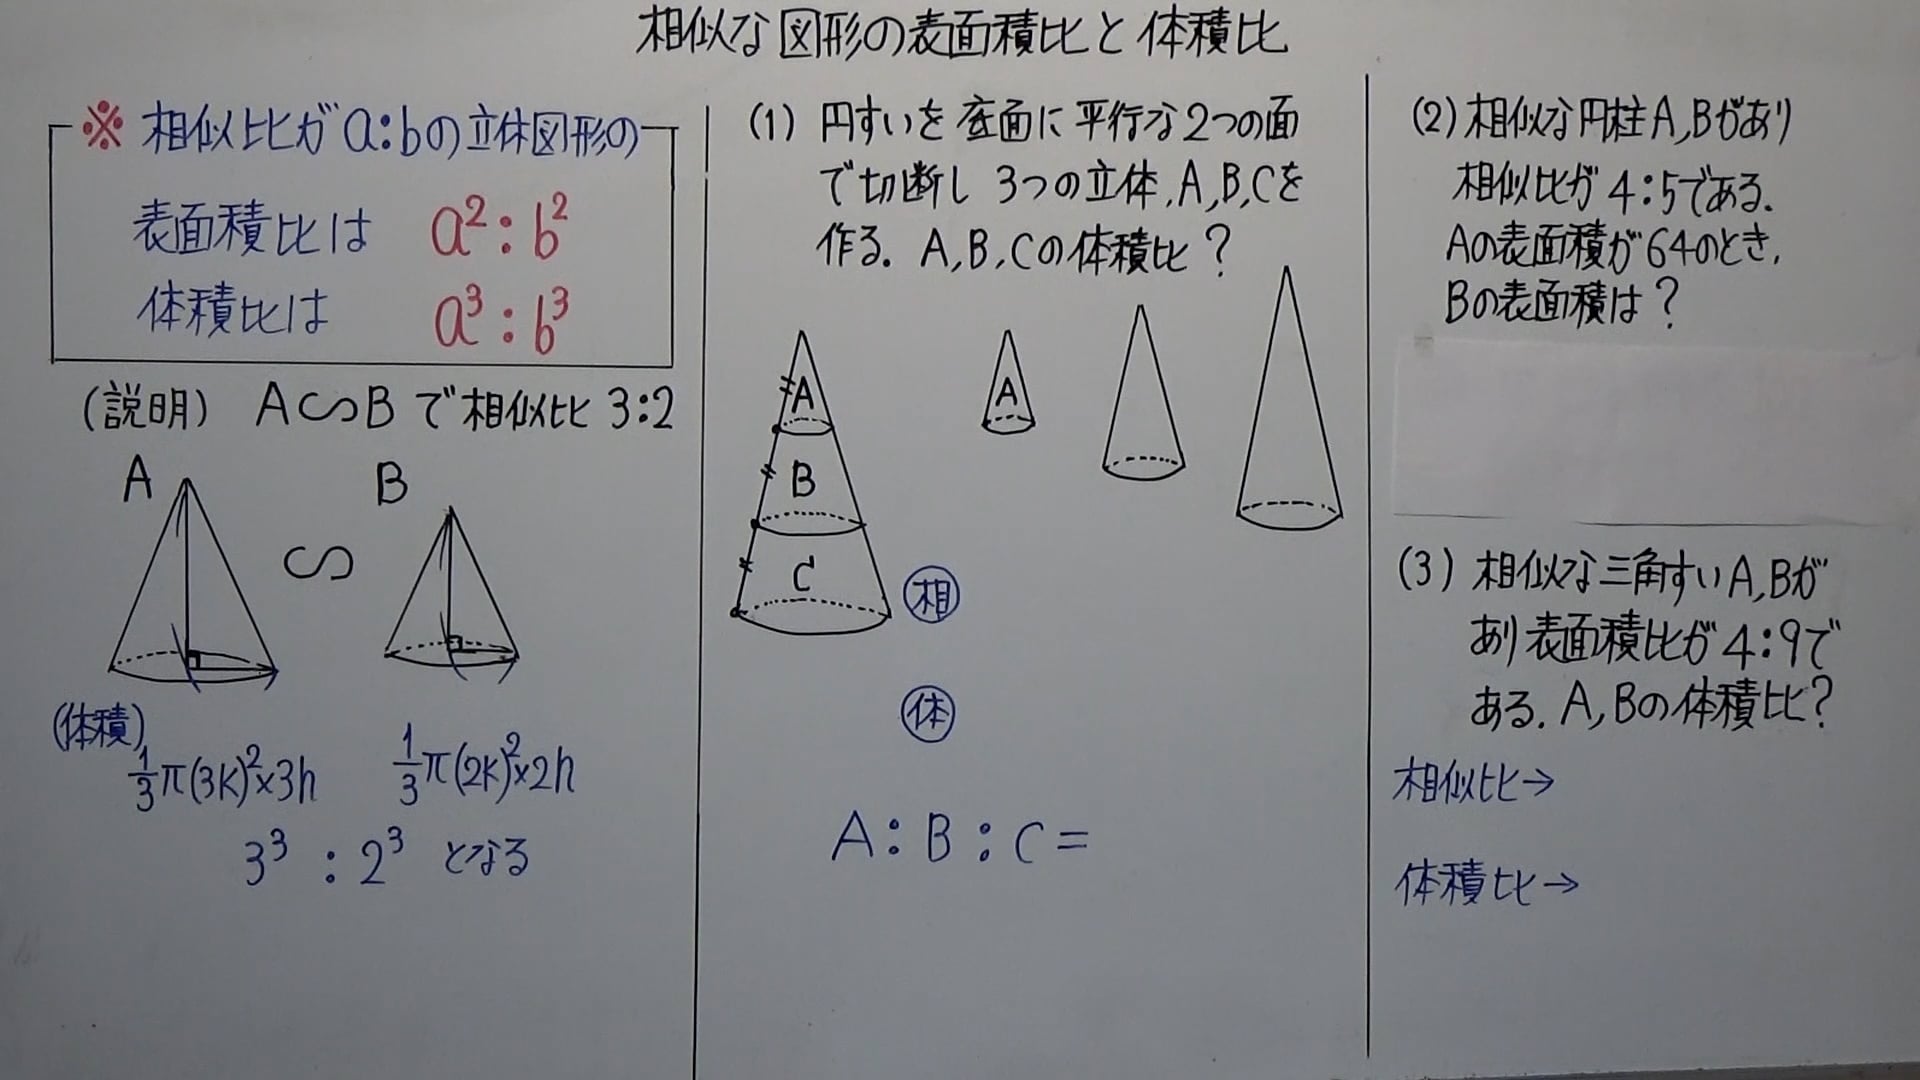 相似な図形の表面積比と体積比
※ 相似比がa:bの立体図形の
表面積比は a²:b²
体積比は a³:b³
(説明) A∽Bで相似比3:2
A
B
∽
(体積)
1/3π(3k)²×3h
1/3π(2k)²×2h
3³ : 2³ となる
(1) 円すいを底面に平行な2つの面
で切断し 3つの立体,A,B,Cを
作る. A,B,Cの体積比?
A
B
C
A
相
体
A:B:C=
(2) 相似な円柱A,Bがあり
相似比が4:5である.
Aの表面積が64のとき,
Bの表面積は?
(3) 相似な三角すいA,Bが
あり表面積比が4:9で
ある. A,Bの体積比?
相似比→
体積比→